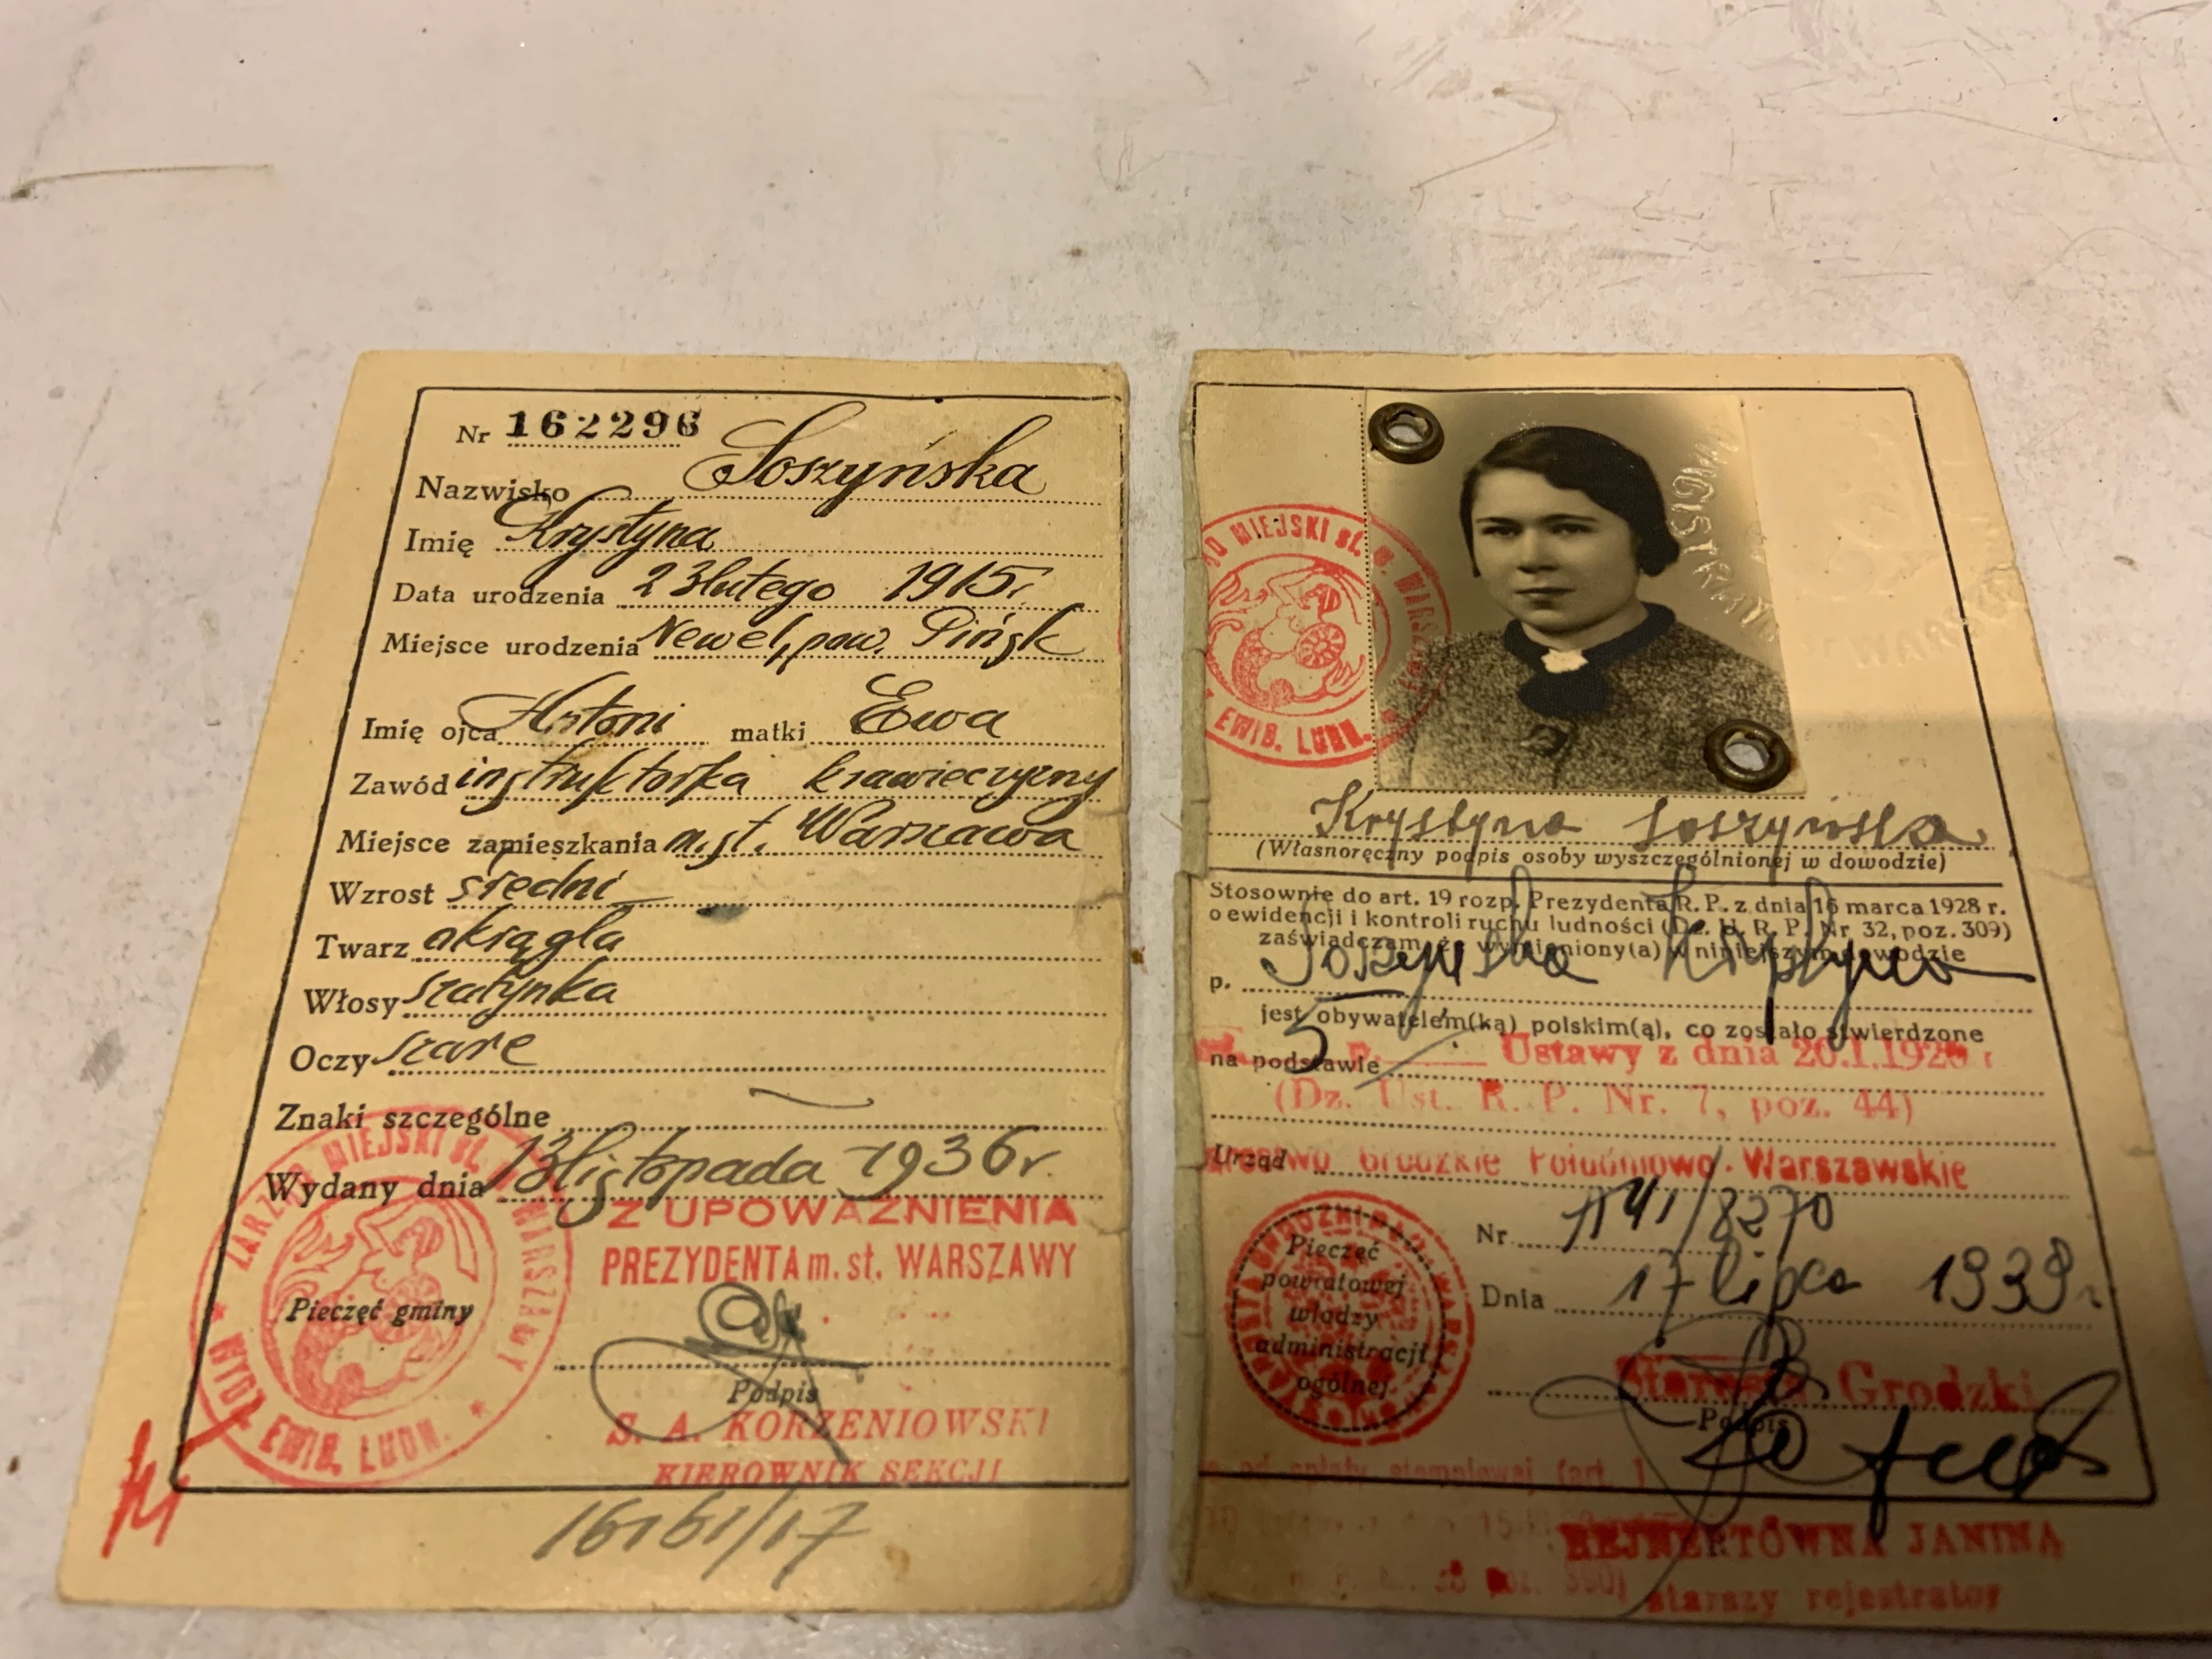 Nr 162296
Nazwisko Soszyńska
Imię Krystyna
Data urodzenia 23 lutego 1915 r.
Miejsce urodzenia Newel, pow. Pińsk
Imię ojca Antoni matki Ewa
Zawód instruktorka
Miejsce zamieszkania m. st. Warszawa
Wzrost średni
Twarz okrągła
Włosy szatynka
Oczy szare
Znaki szczególne
Wydany dnia 13 listopada 1936 r.
Z UPOWAŻNIENIA
PREZYDENTA m. st. WARSZAWY
ZARZĄD MIEJSKI st. m. WARSZAWY
WYDZ. EWID. LUDN.
Pieczęć gminy
Podpis
S. A. KORZENIOWSKI
KIEROWNIK SEKCJI
MAGISTRAT
MIEJSKI st. m. WARSZAWY
EWID. LUDN.
Krystyna Soszyńska
(Własnoręczny podpis osoby wyszczególnionej w dowodzie)
Stosownie do art. 19 rozp. Prezydenta R. P. z dnia 16 marca 1928 r.
o ewidencji i kontroli ruchu ludności (Dz. U. R. P. Nr. 32, poz. 309)
zaświadczam, że wymieniony(a) w niniejszym dowodzie
p. Soszyńska Krystyna
jest obywatelem(ką) polskim(ą), co zostało stwierdzone
na podstawie 5 Ustawy z dnia 20.1.1920 r
(Dz. Ust. R. P. Nr. 7, poz. 44)
Urząd Grodzkie Południowo-Warszawskie
Nr
Dnia 17 lipca 1939 r.
Pieczęć
powiatowej
władzy
administracji
ogólnej
Starosta Grodzki
Podpis
od opłaty stemplowej (art. 1
REJNERTÓWNA JANINA
starszy rejestrator